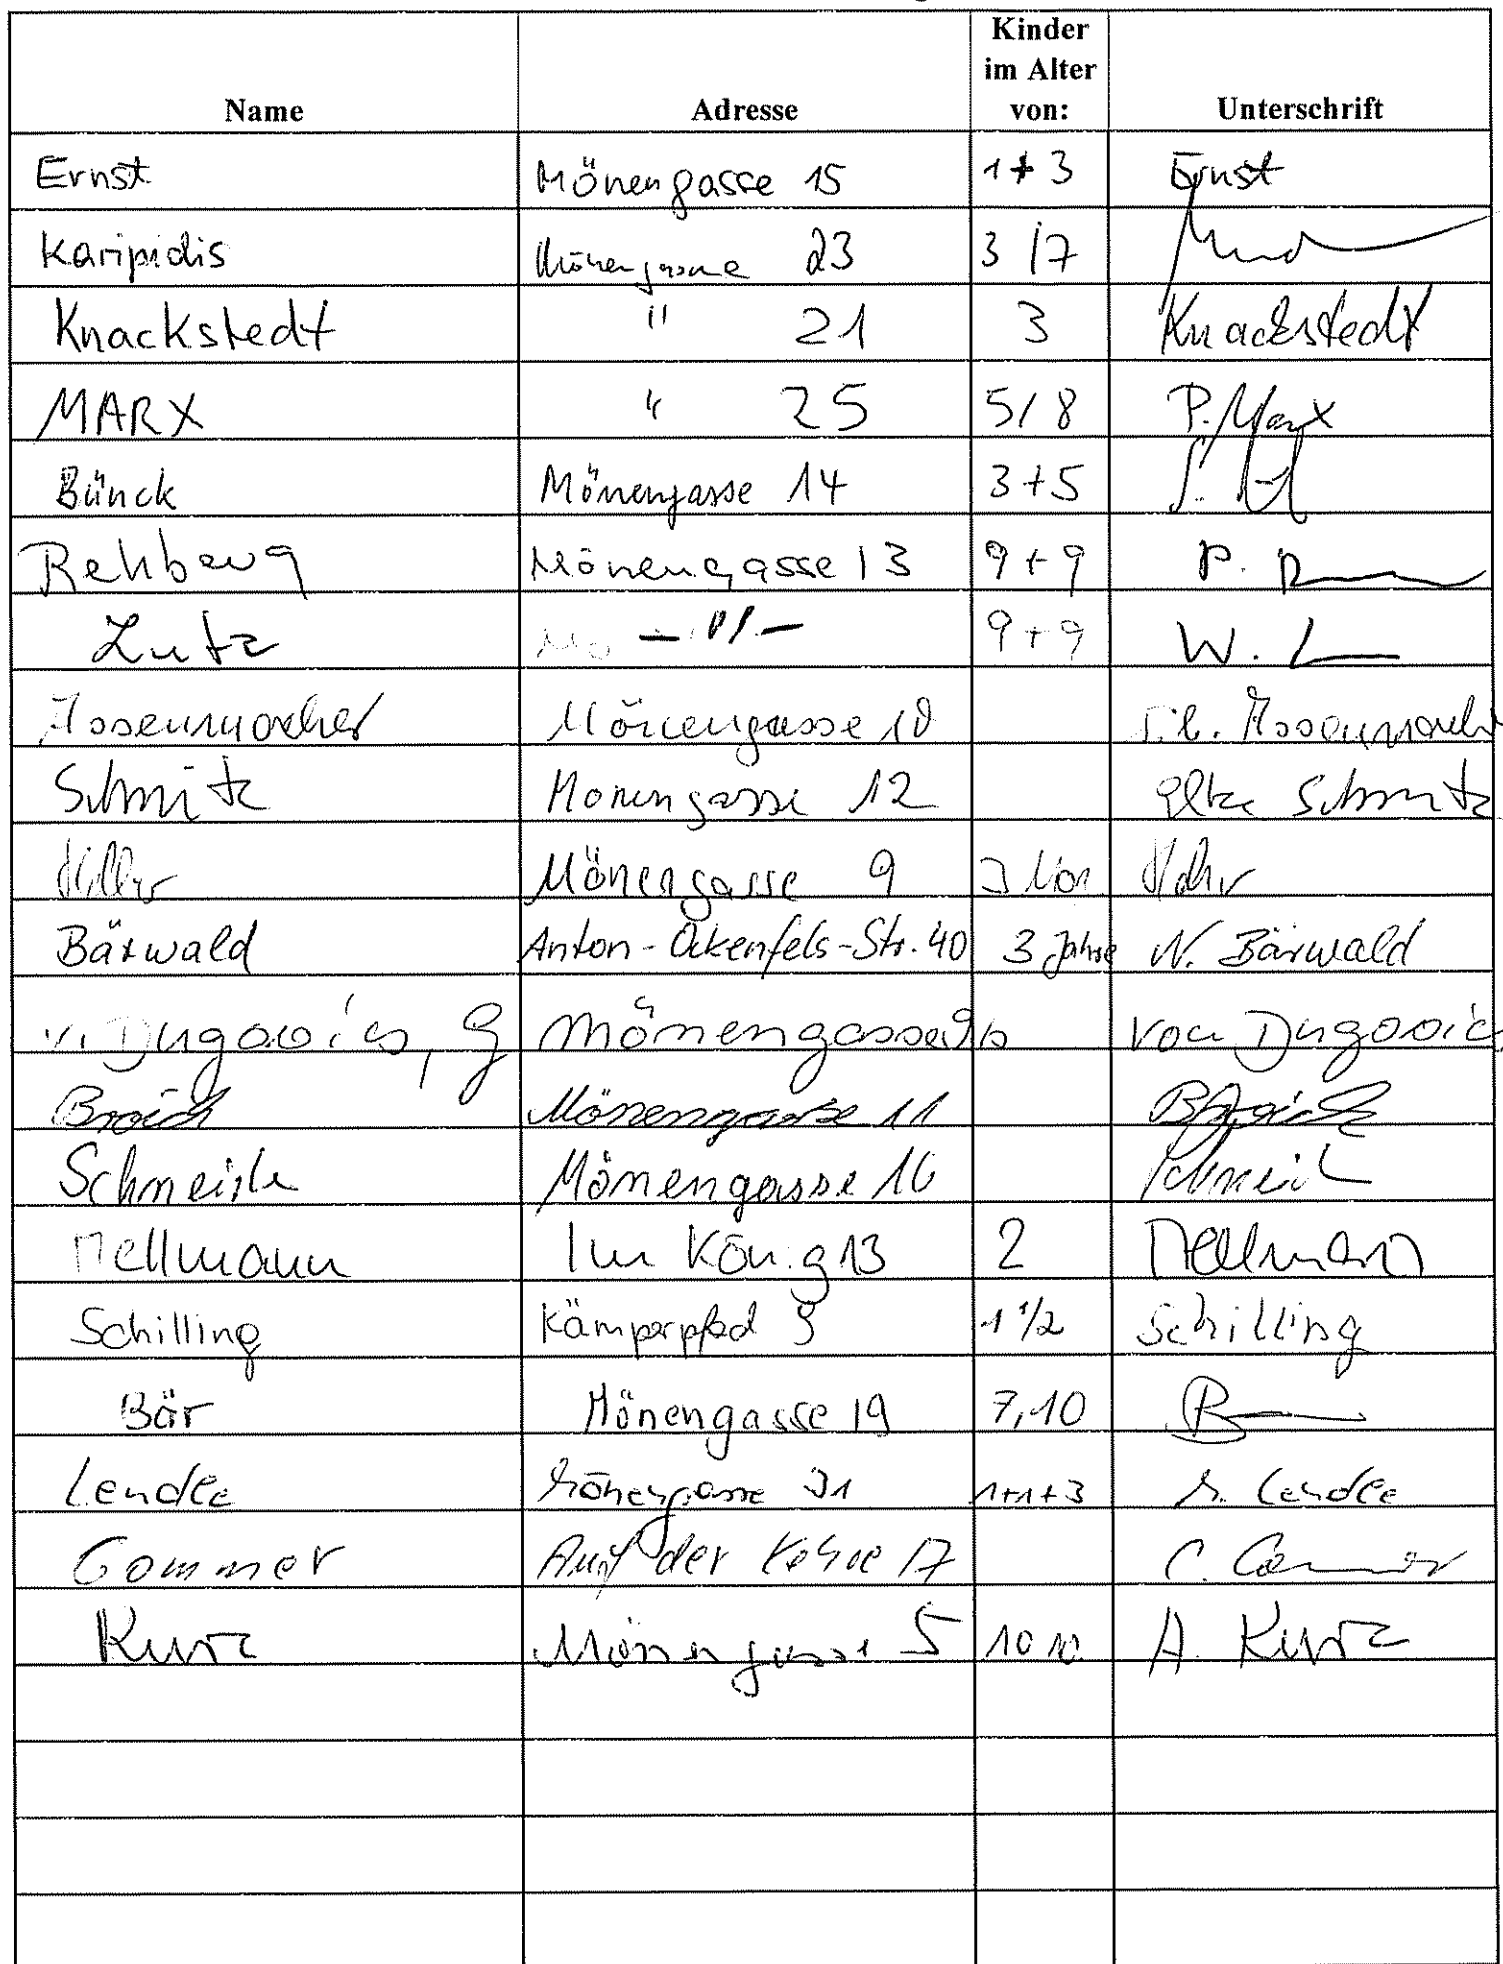 Name Adresse Kinder im Alter von: Unterschrift
Ernst Mönengasse 15 1+3 Ernst
Karipidis Mönengasse 23 3/7
Knackstedt " 21 3 Knackstedt
MARX " 25 5/8 P. Marx
Bünck Mönengasse 14 3+5
Rehberg Mönengasse 13 9+9 P.
Lutz — " — 9+9 W. L
Assenmacher Mönengasse 10 Assenmacher
Schmitz Mönengasse 12 Elke Schmitz
Mönengasse 9 3 Mon
Bärwald Anton-Ockenfels-Str. 40 3 Jahre N. Bärwald
v. Dugovics, G Mönengasse 9b von Dugovics
Broich Mönengasse 11 Broich
Mönengasse 16
Mellmann Im König 13 2 Mellmann
Schilling Kämperpfad 3 1 1/2 Schilling
Bär Mönengasse 19 7,10 B
Lendle Mönengasse 31 1+1+3 Lendle
Gommer Auf der 17 C. Gommer
Kurz Mönengasse 5 10 10 A. Kurz